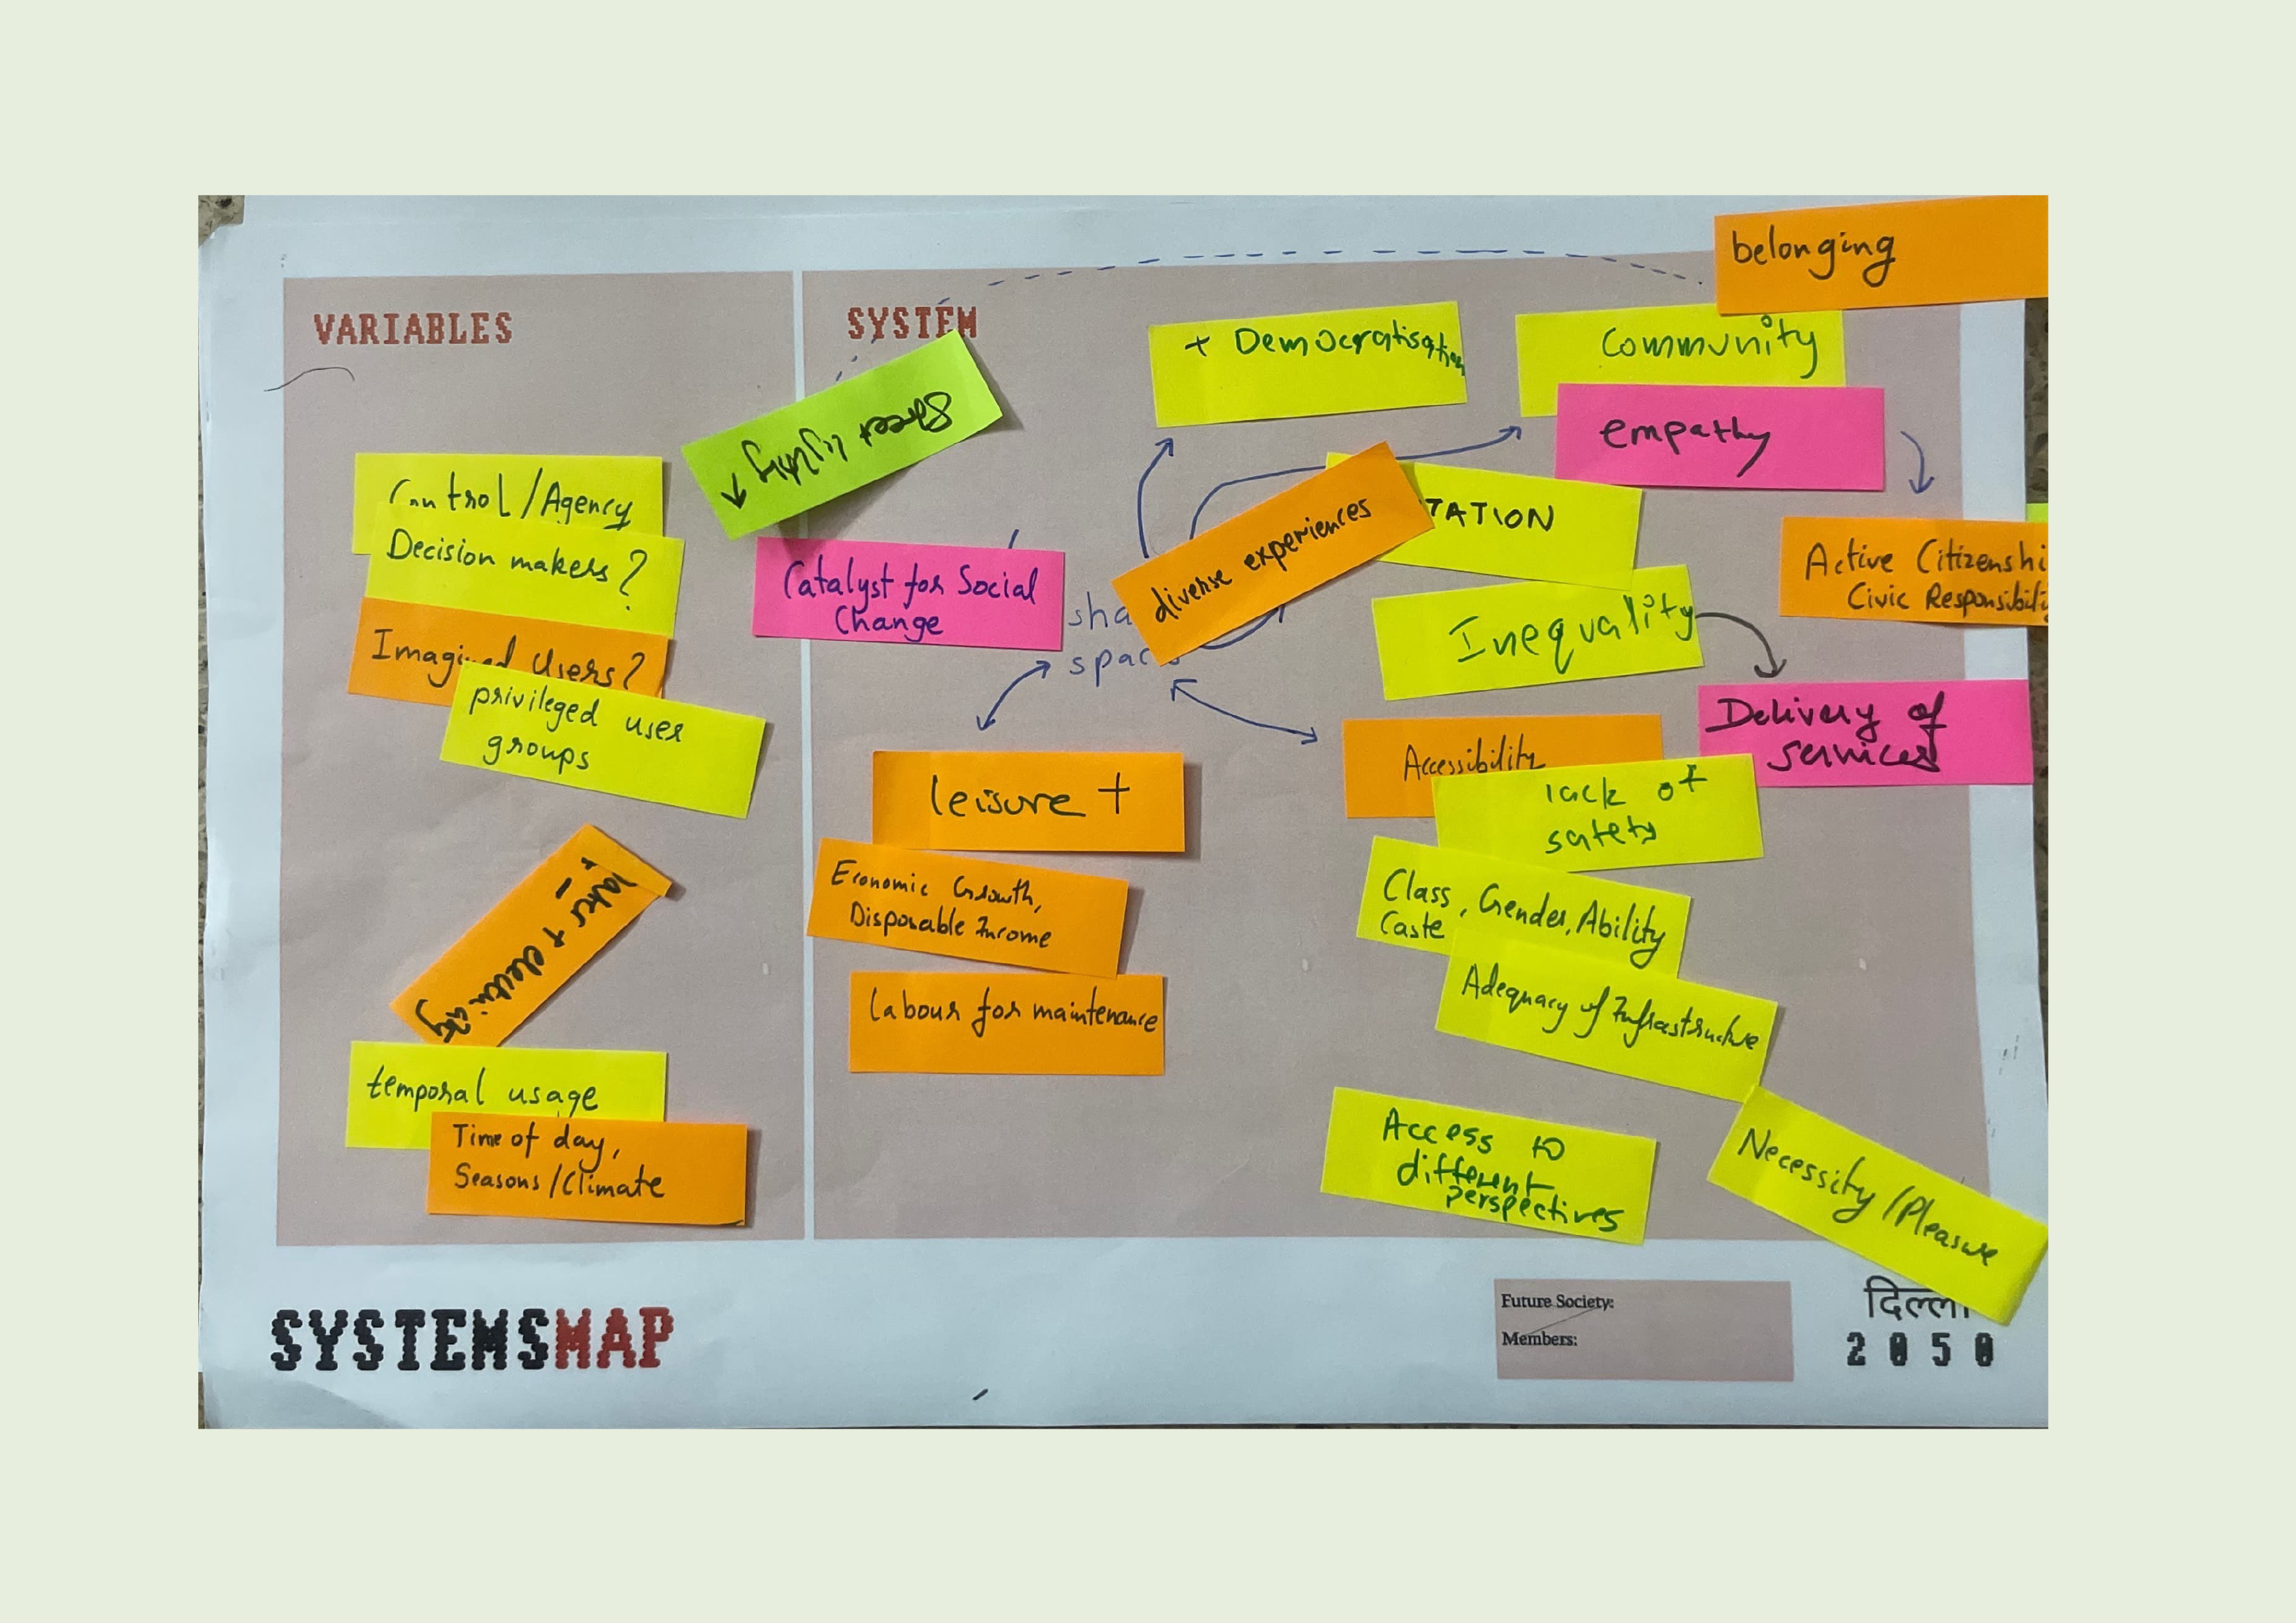 VARIABLES
SYSTEM
belonging
+ Democratisation
Community
empathy
Street lighting
Control/Agency
Decision makers?
Imagined Users?
privileged user
groups
Catalyst for Social
Change
diverse experiences
TATION
Inequality
Active Citizenshi
Civic Responsibilit
Delivery of
services
leisure +
Accessibility
lack of
safety
Economic Growth,
Disposable Income
Class, Gender, Ability
Caste
labour for maintenance
Adequacy of Infrastructure
+ electricity
temporal usage
Time of day,
Seasons/Climate
Access to
different
perspectives
Necessity/Pleasure
SYSTEMSMAP
Future Society:
Members:
2050